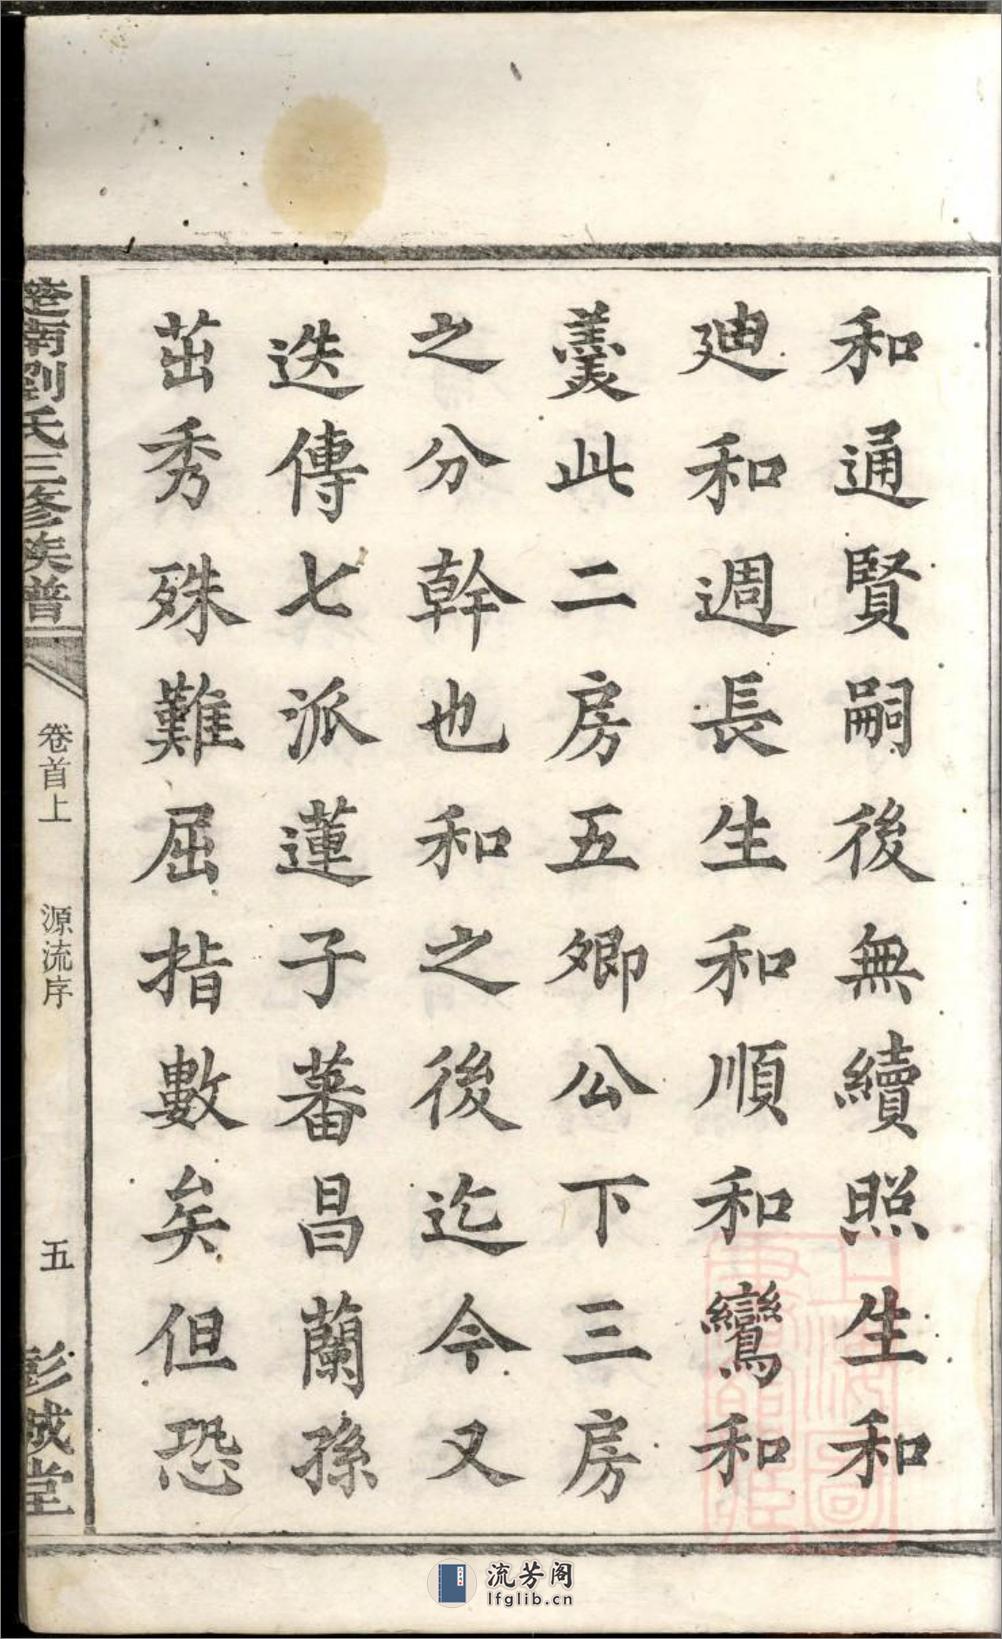 和通賢嗣後無續照生和
廸和週長生和順和鸞和
羹此二房五卿公下三房
之分幹也和之後迄今又
迭傳七派蓮子蕃昌蘭孫
茁秀殊難屈指數矣但恐
楚南劉氏三修族譜
卷首上
源流序
五
彭城堂
流芳阁
lfglib.cn